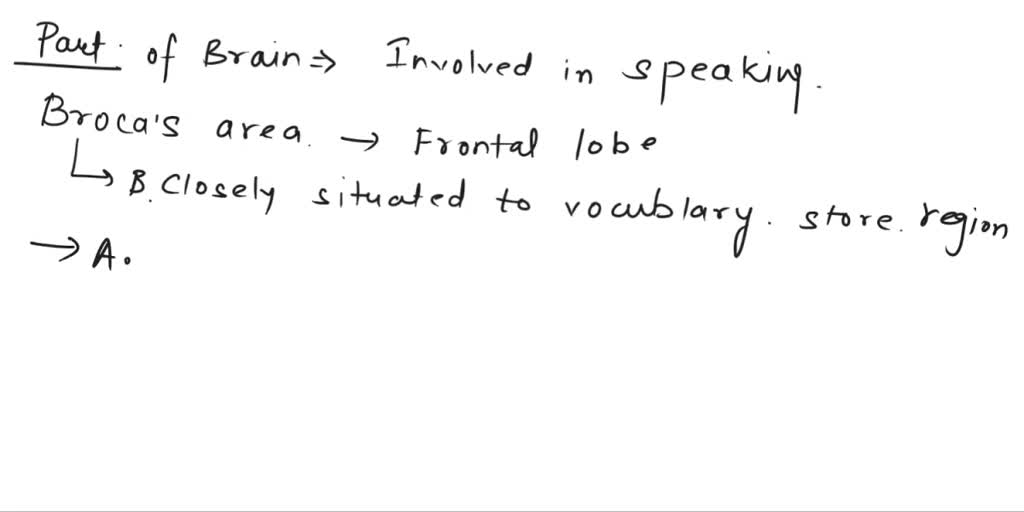 Part. of Brain ⇒ Involved in speaking.
Broca's area. → Frontal lobe
↳ B. Closely situated to vocublary. store. region
→ A.